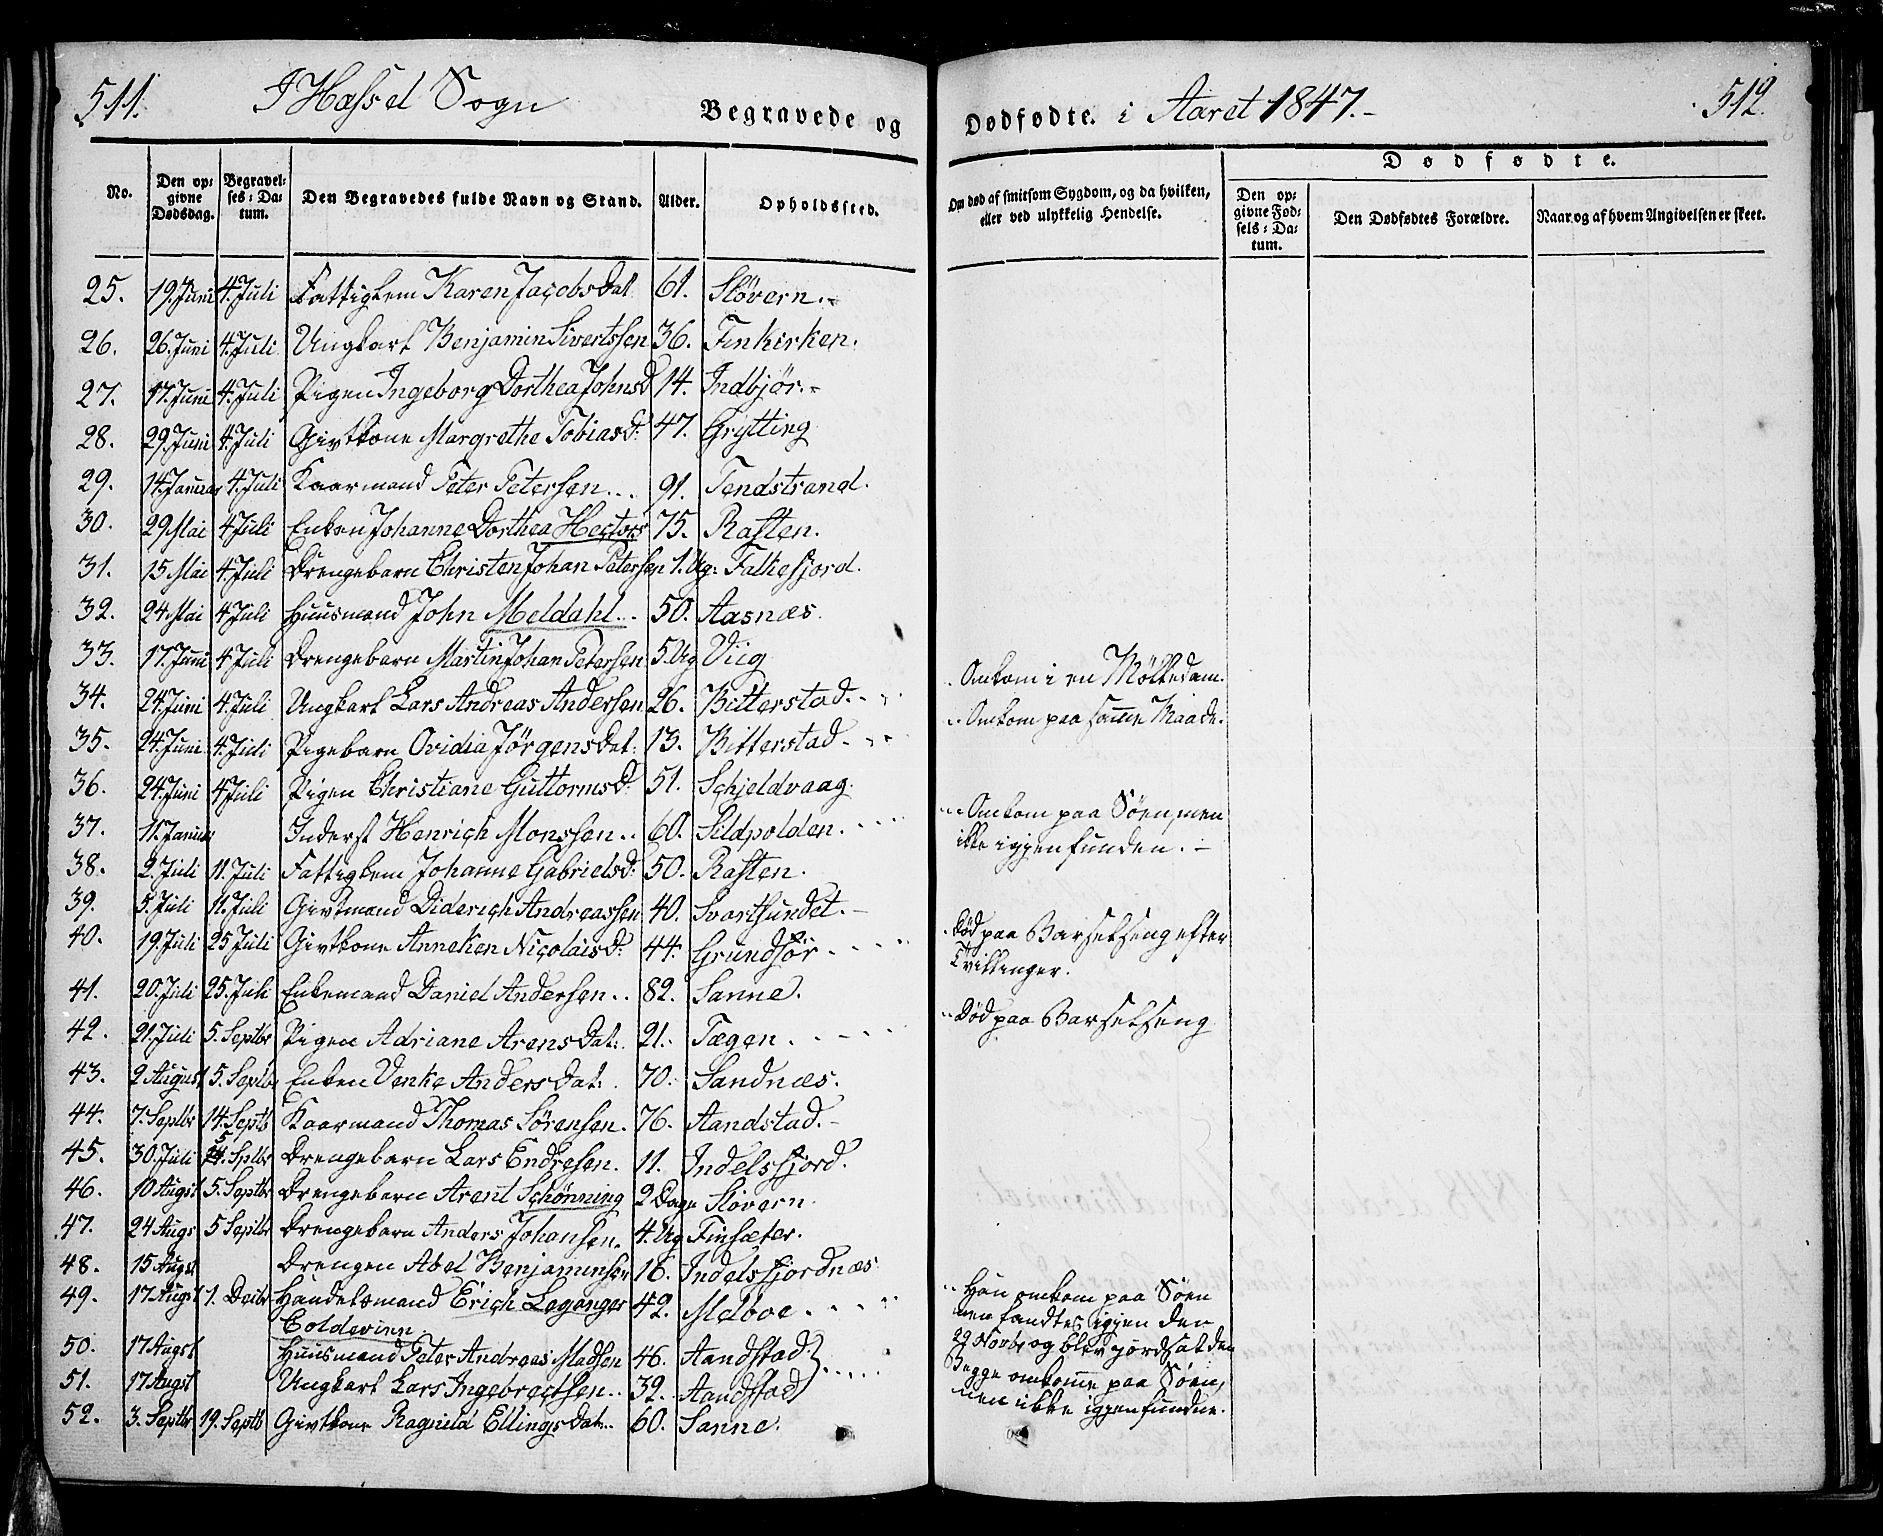 511. I Hassel Sogn Begravede og
Dødfødte. i Aaret 1847.- 512.
No. Den opgivne Dødsdag. Begravelses-Datum. Den Begravedes fulde Navn og Stand. Alder. Opholdssted.
Om død af smitsom Sygdom, og da hvilken, eller ved ulykkelig Hendelse.
Dødfødte.
Den opgivne Fødsels-Datum. Den Dødfødtes Forældre. Naar og af hvem Angivelsen er skeet.
25. 19. Juni 4. Juli Fattiglem Karen Jacobsdat 61. Støvern.
26. 26. Juni 4. Juli Ungkarl Benjamin Sivertssen 36. Finkirken.
27. 17. Juni 4. Juli Pigen Ingeborg Dorthea Johnsd 14. Indbjør.
28. 29. Juni 4. Juli Givtkone Margrethe Tobiasd: 47. Grytting
29. 14. Januar 4. Juli Kaarmand Peter Petersen... 91. Tendstrand.
30. 29 Mai 4 Juli Enken Johanne Dorthea Hectors 75. Raften.
31. 15 Mai 4. Juli Drengebarn Christen Johan Petersen 1. Ug: Falkefjord.
32. 24 Mai 4 Juli Huusmand John Meldahl... 50. Aasnæs.
33. 17. Juni 4 Juli Drengebarn Martin Johan Petersen 5. Ug Viig
34. 24 Juni 4. Juli Ungkarl Lars Andreas Andersen 26. Bitterstad.
Omkom i en Mølledam.
35. 24. Juni 4. Juli Pigebarn Ovidia Jørgensdat: 13. Bitterstad
Omkom paa samme Maade.
36. 24 Juni 4 Juli Pigen Christiane Guttormsd: 51. Schjeldvaag.
37. 11. Januar Inderst Henrich Monssen.. 60. Sildpolden.
Omkom paa Søen, men
ikke igjenfunden.-
38. 2. Juli 11. Juli Fattiglem Johanne Gabrielsd: 50. Raften.
39. 5. Juli 11. Juli Givtmand Diderich Andreassen 40. Svartsundet.
40. 19 Juli 25 Juli Givtkone Anneken Nicolaisd: 44. Grundfør
Død paa Barselseng efter
Tvillinger.
41. 20. Juli 25. Juli Enkemand Daniel Andersen.. 82. Sanne.
42. 21. Juli 5. Septbr Pigen Adriane Arensdat: 21. Tægen
Død paa Barselseng
43. 2 August 5. Septbr Enken Venke Andersdat: 70. Sandnæs.
44. 7. Septbr 14. Septb Kaarmand Thomas Sørensen. 76. Aandstad.
45. 30. Juli 5. Sptbr Drengebarn Lars Endresen. 11. Indelsfjord.
46. 10 Augst 5. Septbr Drengebarn Arent Schønning 2 Dage Støvern.
47. 24 Augs 5 Septbr Drengebarn Anders Johansen. 4. Ug Finsæter.
48. 15 Augst Drengen Abel Benjaminsen 16. Indelsfjordnæs.
49. 17 Augst 1. Decbr Handelsmand Erich Leganger 42. Melboe
Coldevien.
Han omkom paa Søen
men fandtes igjen den
29 Novbr og blev jordsat den
50. 17 Augst Huusmand Peter Andreas Madsen 46. Aandstad
51. 17 Augst Ungkarl Lars Ingebrectsen.. 32. Aandstad
Begge omkomne paa Søen,
men ikke igjenfundne.
52. 3. Septbr 19. Septb Givtkone Ragnild Ellingsdat.. 60. Sanne.